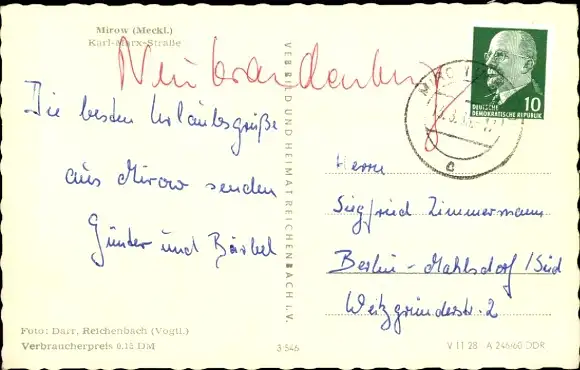 Mirow (Meckl.)
Karl-Marx-Straße
Neubrandenburg
Die besten Urlaubsgrüße
aus Mirow senden
Günter und Bärbel
Foto: Darr, Reichenbach (Vogtl.)
Verbraucherpreis 0.15 DM
VEB BILD UND HEIMAT REICHENBACH I. V.
3 546
10
DEUTSCHE
DEMOKRATISCHE REPUBLIK
MIROW
c
Herrn
Siegfried Zimmermann
Berlin-Mahlsdorf/Süd
V 11 28 A 246/60 DDR